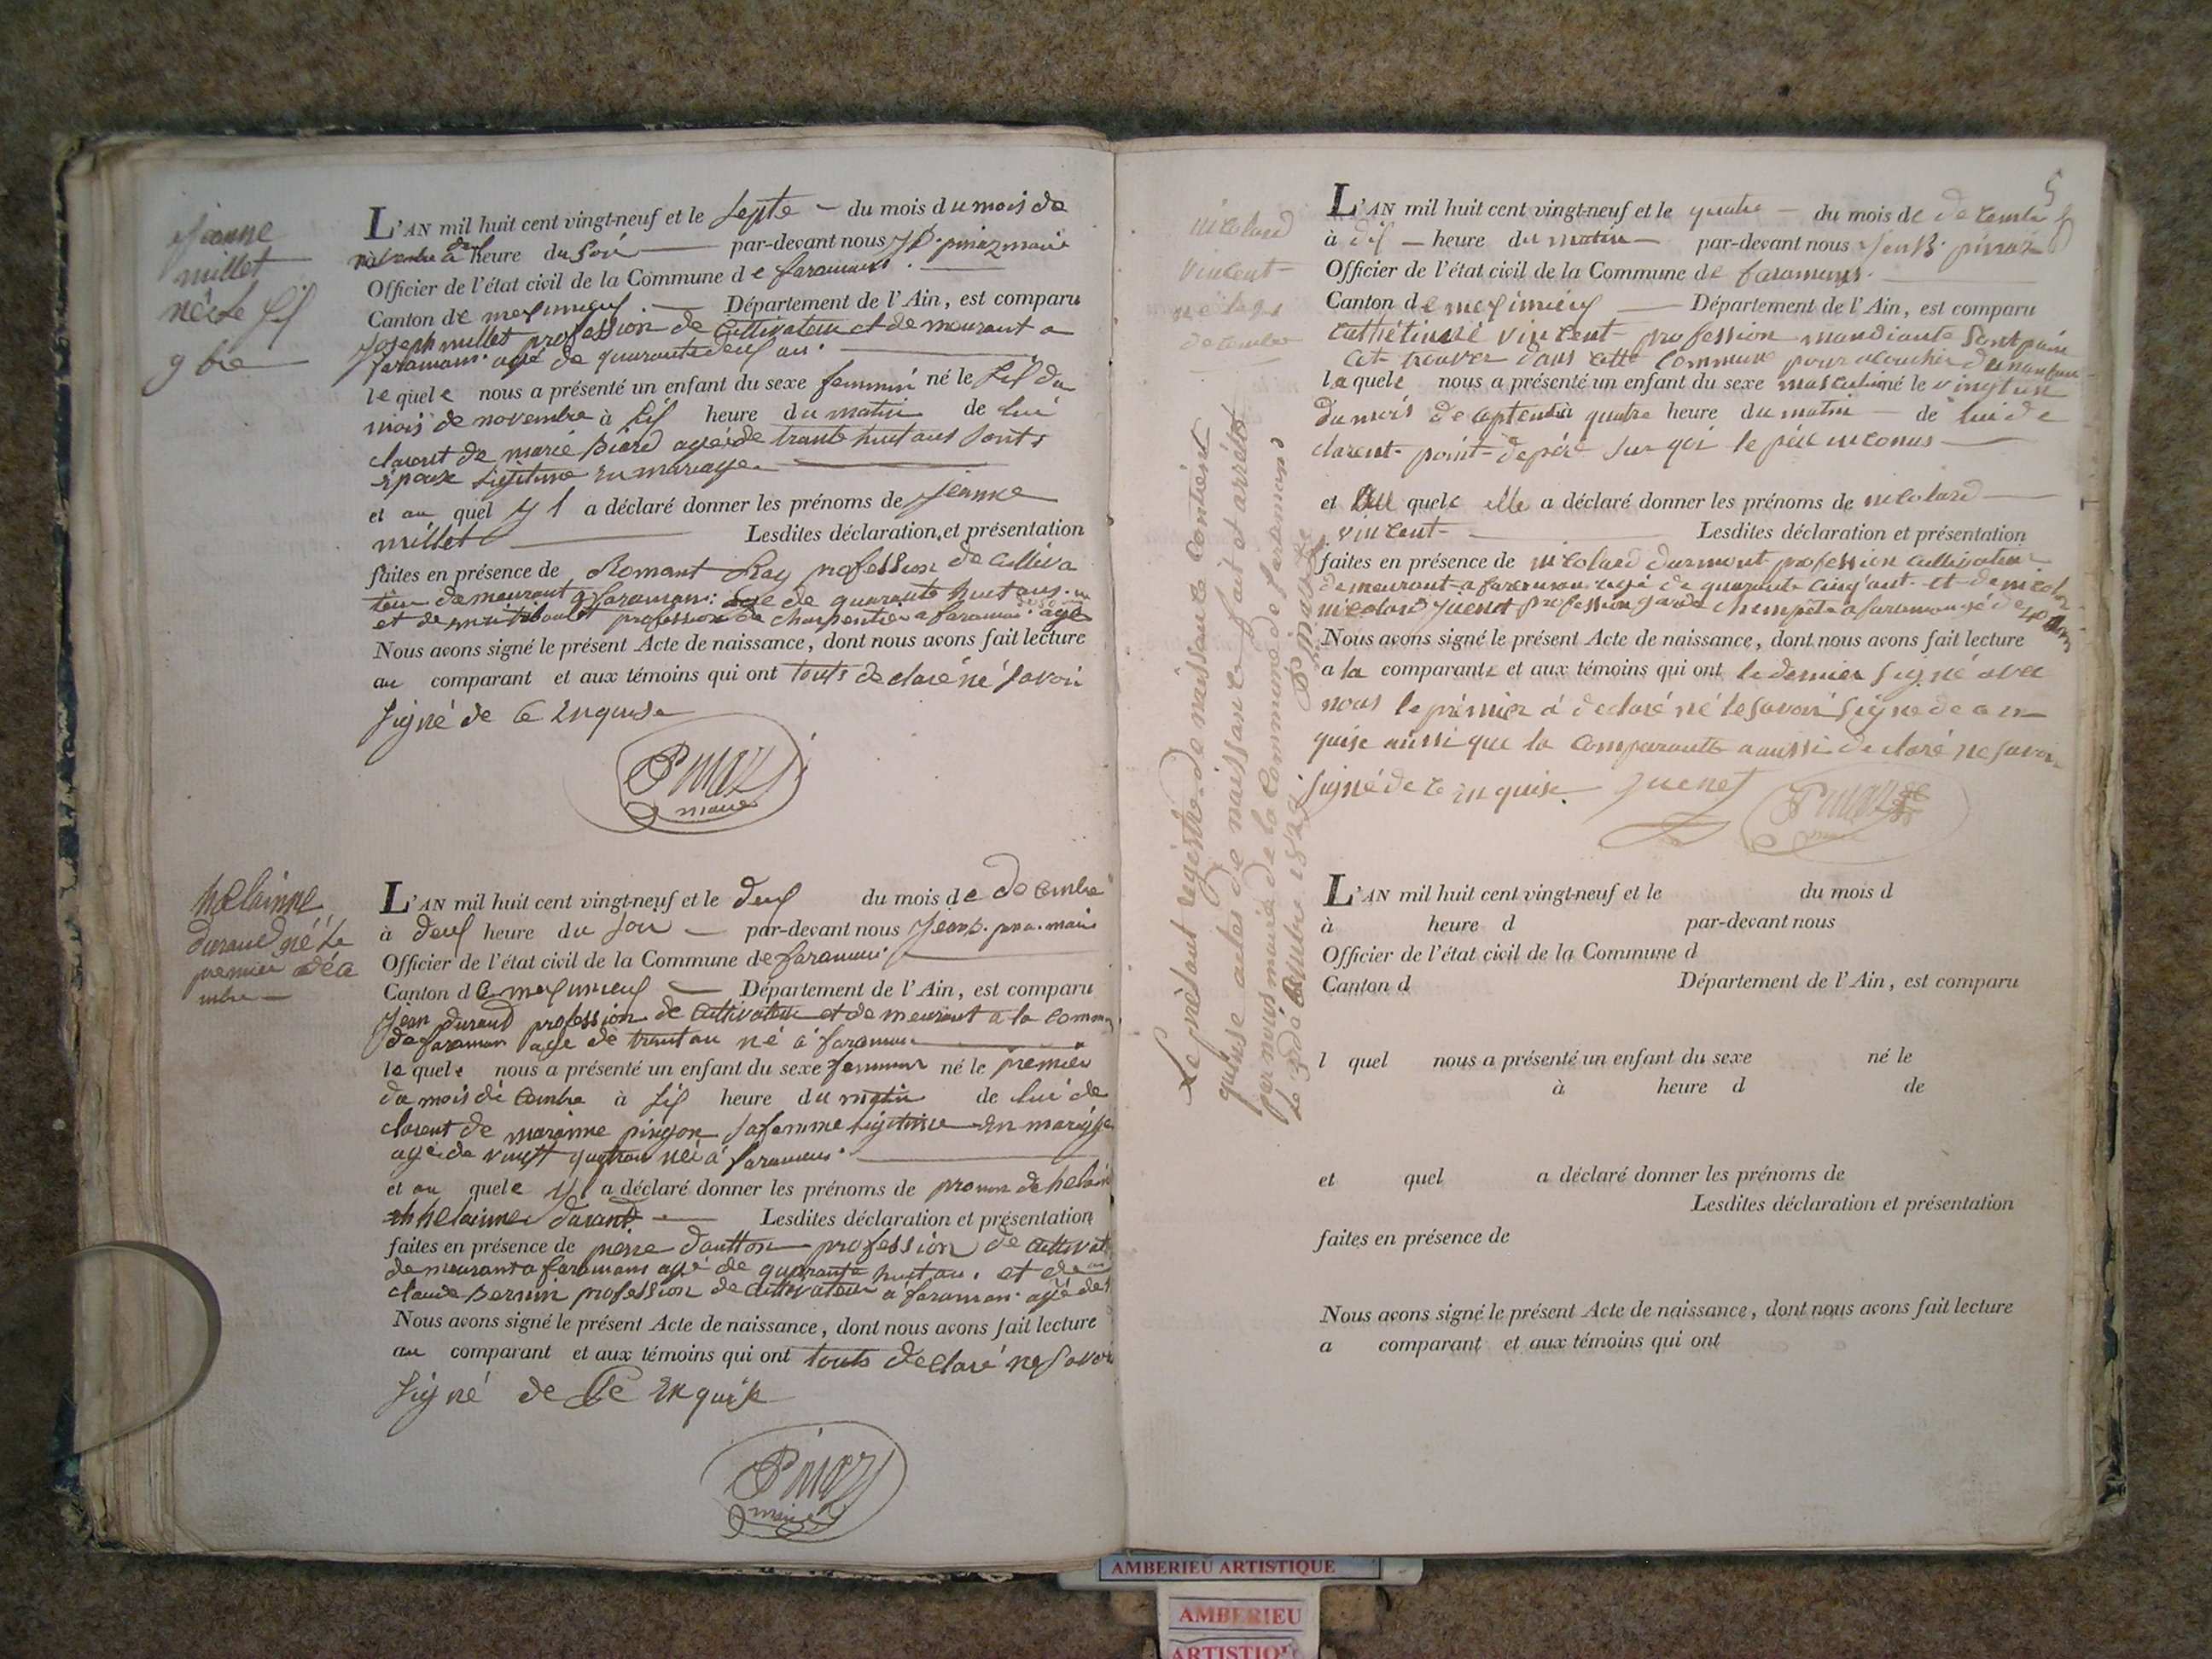 Jeanne
millet
née le six
9bre
L'AN mil huit cent vingt-neuf et le septe du mois du mois de
novembre à heure du soir par-devant nous J.B. pinaz maire
Officier de l'état civil de la Commune de faramans
Canton de meximieux Département de l'Ain, est comparu
Joseph millet profession de cultivateur et demeurant a
faramans agé de quarante deux ans
le quele nous a présenté un enfant du sexe feminin né le six du
mois de novembre à six heure du matin de lui
clarent de marie Biard agée de trante huit ans sont
epouse légitime en mariage
et au quel yl a déclaré donner les prénoms de Jeanne
millet Lesdites déclaration et présentation
faites en présence de Romant Ray profession de culliva
teur demeurant a faramans age de quarante huit ans
et de profession de charpentier a faramans agé
Nous avons signé le présent Acte de naissance, dont nous avons fait lecture
au comparant et aux témoins qui ont touts declaré né savoir
signé de ce enquise
Pinaz
maire
helainne
durand né le
premier déce
mbre
L'AN mil huit cent vingt-neuf et le deux du mois de decembre
à deux heure du soir par-devant nous Jean B. pina maire
Officier de l'état civil de la Commune de faramans
Canton de meximieux Département de l'Ain, est comparu
Jean durand profession de cultivateur et demeurant a la commu
de faraman age de trant an né à faraman
le quele nous a présenté un enfant du sexe feminin né le premier
du mois de cembre à six heure du matin de lui de
clarent de marianne pingon sa femme legitime en mariage
agé de vingt quatre an née à faramans
et au quele yl a déclaré donner les prénoms de pronom de helain
helainne durant Lesdites déclaration et présentation
faites en présence de pierre dautton profession de cultivat
demeurant a faramans agé de quarante huit an et de
claude Bernin profession de cultivateur a faraman agé de
Nous avons signé le présent Acte de naissance, dont nous avons fait lecture
au comparant et aux témoins qui ont touts declaré ne savoir
signé de Ce enquise
Pinaz
maire
5
nicolard
Vincent
né le 21
L'AN mil huit cent vingt-neuf et le quatre du mois de decembre
à dix heure du matin par-devant nous Jean B. pinaz
Officier de l'état civil de la Commune de faramans
Canton de meximieux Département de l'Ain, est comparu
vincent profession mandiante
cet trouver dans cette Commune pour acoucher
la quele nous a présenté un enfant du sexe masculin né le vingt un
du mois de septembre à quatre heure du matin de lui de
clarent point de péré sur qoi le pére inconus
et quele elle a déclaré donner les prénoms de nicolard
vincent Lesdites déclaration et présentation
faites en présence de nicolard durmont profession cultivateur
demeurant a faraman agé de quarante cinq ant et de nicol
nicolard Juenet profession garde chempêtre a faraman
Nous avons signé le présent Acte de naissance, dont nous avons fait lecture
a la comparante et aux témoins qui ont le dernier signé avec
nous le prémier a declaré né le savoir signe de ce en
quise aussi que la comparante a aussi declaré ne savoir
signé de ce enquise Juenet
Pinaz
Le présant regestre de naissance contient
quinse actes de naissance fait et arrété
par nous maire de la commune de faramans
le 31 decembre 1829 Pinaz
L'AN mil huit cent vingt-neuf et le du mois d
à heure d par-devant nous
Officier de l'état civil de la Commune d
Canton d Département de l'Ain, est comparu
l quel nous a présenté un enfant du sexe né le
à heure d de
et quel a déclaré donner les prénoms de
Lesdites déclaration et présentation
faites en présence de
Nous avons signé le présent Acte de naissance, dont nous avons fait lecture
a comparant et aux témoins qui ont
AMBERIEU ARTISTIQUE
AMBERIEU
ARTISTIQUE